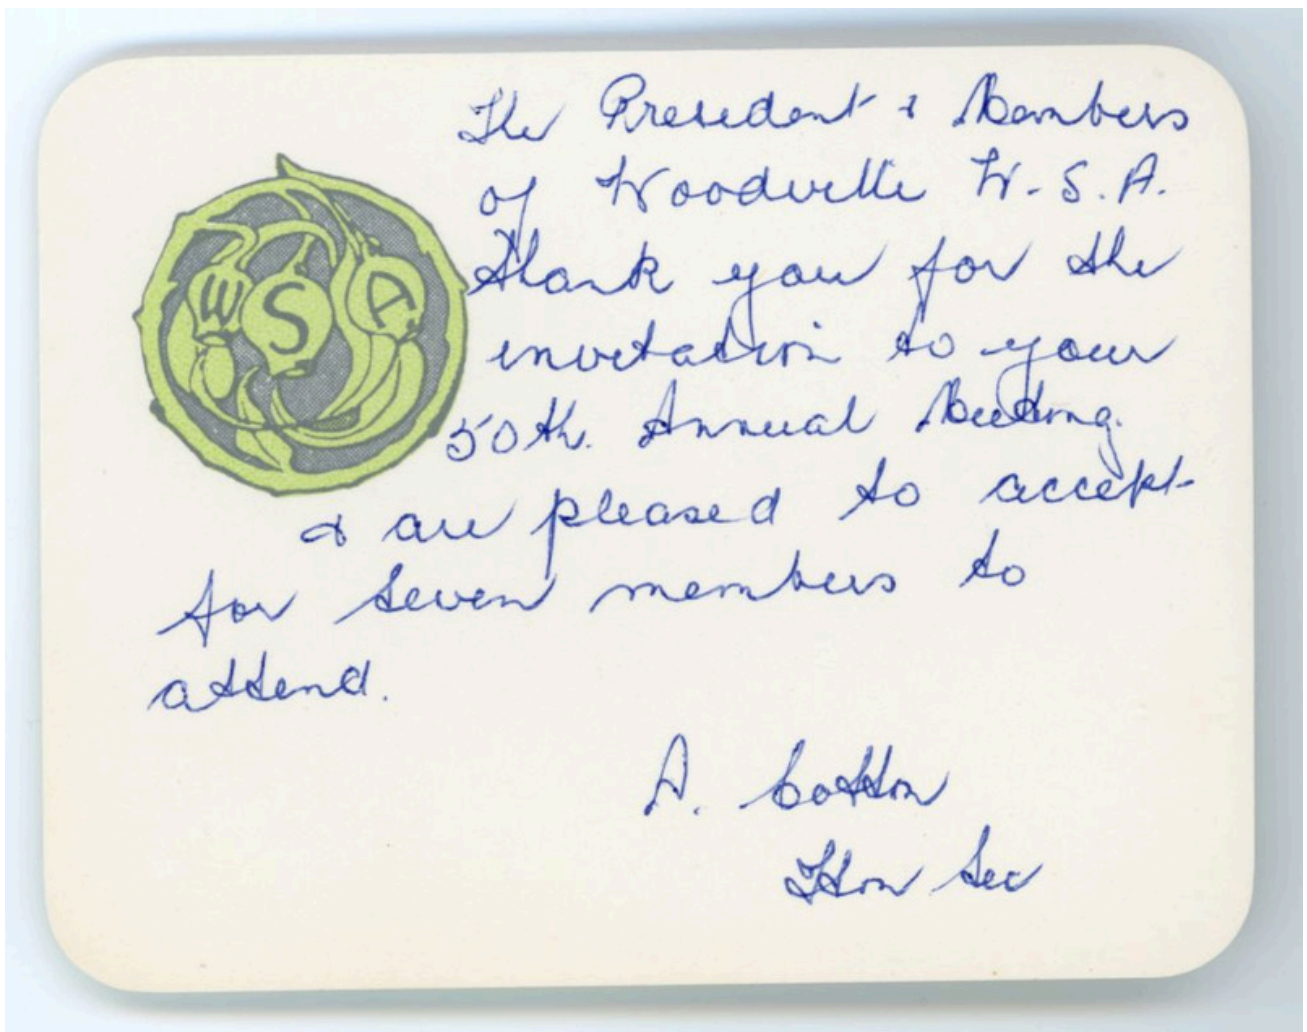 The President & Members
of Woodville W.S.A.
thank you for the
invitation to your
50th. Annual Meeting.
& are pleased to accept
for seven members to
attend.
A. Cotton
Hon Sec
WSA